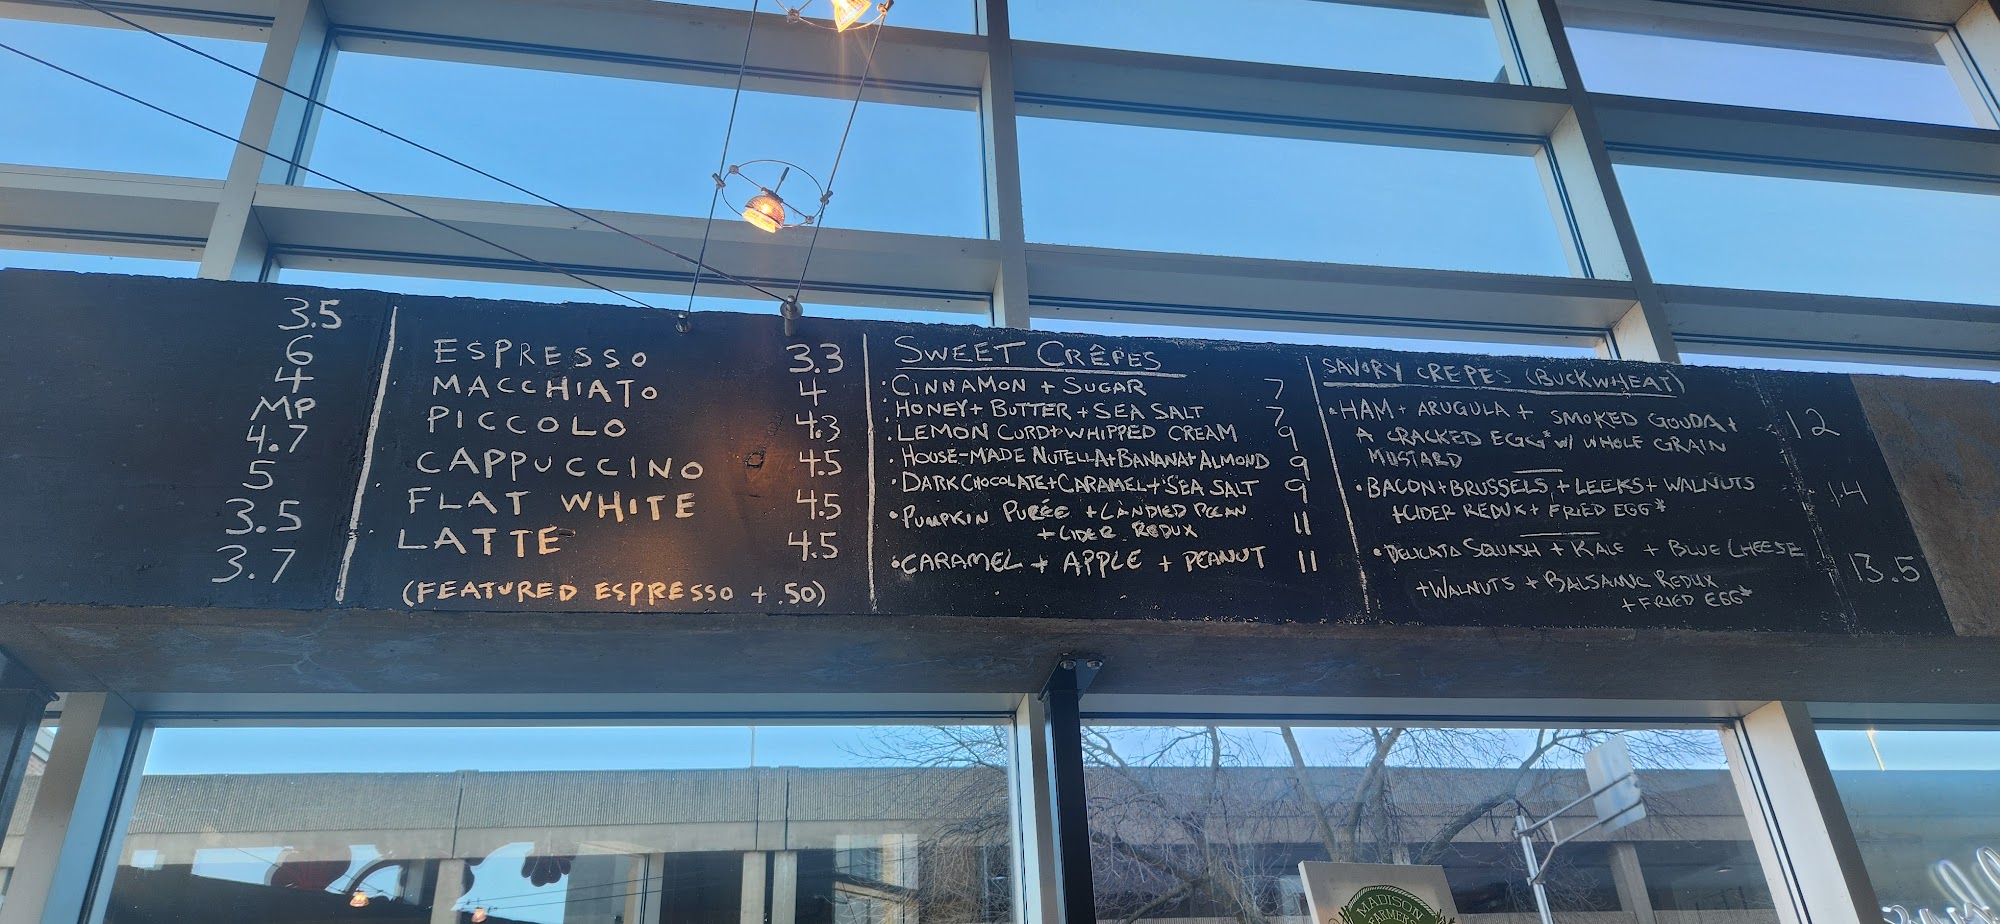 3.5
6
4
MP
4.7
5
3.5
3.7
ESPRESSO 3.3
MACCHIATO 4
PICCOLO 4.3
CAPPUCCINO 4.5
FLAT WHITE 4.5
LATTE 4.5
(FEATURED ESPRESSO + .50)
SWEET CRÊPES
• CINNAMON + SUGAR 7
• HONEY + BUTTER + SEA SALT 7
• LEMON CURD + WHIPPED CREAM 9
• HOUSE-MADE NUTELLA + BANANA + ALMOND 9
• DARK CHOCOLATE + CARAMEL + SEA SALT 9
• PUMPKIN PURÉE + CANDIED PECAN
+ CIDER REDUX 11
• CARAMEL + APPLE + PEANUT 11
SAVORY CREPES (BUCKWHEAT)
• HAM + ARUGULA + SMOKED GOUDA + 12
A CRACKED EGG* W/ WHOLE GRAIN
MUSTARD
• BACON + BRUSSELS + LEEKS + WALNUTS 14
+ CIDER REDUX + FRIED EGG*
• DELICATA SQUASH + KALE + BLUE CHEESE 13.5
+ WALNUTS + BALSAMIC REDUX
+ FRIED EGG*
MADISON
FARMERS